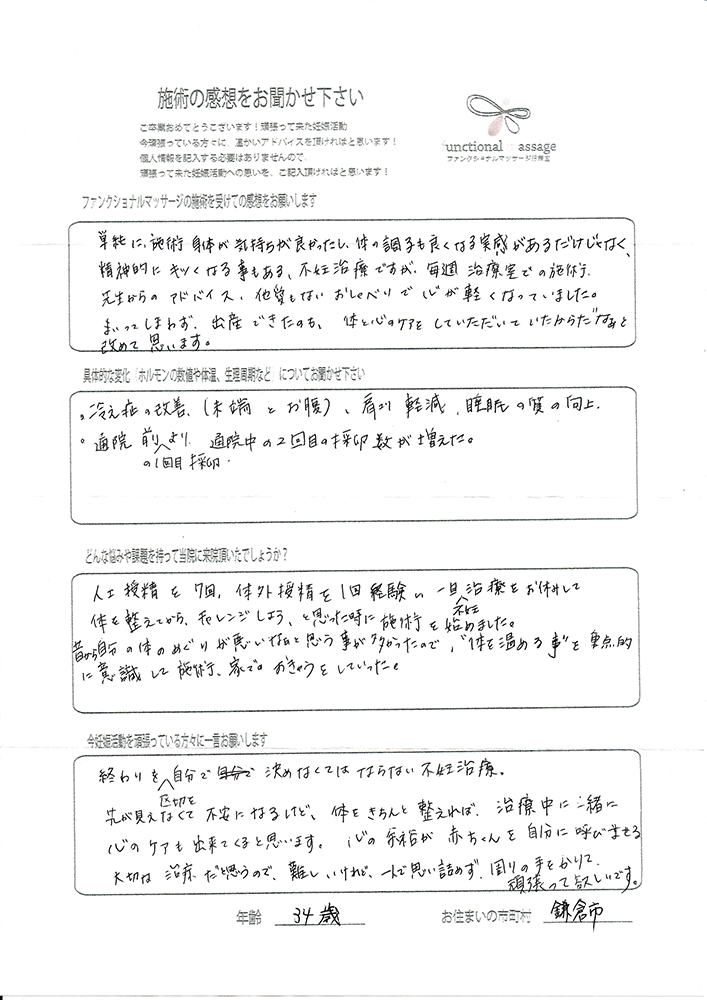 施術の感想をお聞かせ下さい
ご卒業おめでとうございます！頑張って来た妊娠活動
今頑張っている方々に、温かいアドバイスを頂ければと思います！
個人情報を記入する必要はありませんので、
頑張って来た妊娠活動への思いを、ご記入頂ければと思います！
functional massage
ファンクショナルマッサージ治療室
ファンクショナルマッサージの施術を受けての感想をお願いします
単純に、施術自体が気持ちが良かったし、体の調子も良くなる実感があるだけじゃなく、
精神的にキツくなる事もある、不妊治療ですが、毎週 治療室での施術、
先生からのアドバイス、他愛もないおしゃべりで心が軽くなっていました。
まいってしまわず、出産できたのも、体と心のケアをしていただいていたからだなぁと
改めて思います。
具体的な変化「ホルモンの数値や体温、生理周期など」についてお聞かせ下さい
。冷え症の改善、(末端とお腹)、肩こり軽減、睡眠の質の向上、
。通院前の1回目採卵より、通院中の2回目の採卵数が増えた。
どんな悩みや課題を持って当院に来院頂いたでしょうか？
人工授精を7回、体外授精を1回経験し、一旦不妊治療をお休みして
体を整えてから、チャレンジしよう、と思った時に施術を始めました。
昔から自分の体のめぐりが悪いなと思う事が多かったので、"体を温める事"を重点的
に意識して施術、家でのおきゅうをしていった。
今妊娠活動を頑張っている方々に一言お願いします
終わりを区切を自分で決めなくてはならない不妊治療。
先が見えなくて不安になるけど、体をきちんと整えれば、治療中に一緒に
心のケアも出来てくると思います。心の余裕が赤ちゃんを自分に呼びませる
大切な治療だと思うので、難しいけれど、一人で思い詰めず、周りの手をかりて、
頑張って欲しいです。
年齢 34歳 お住まいの市町村 鎌倉市